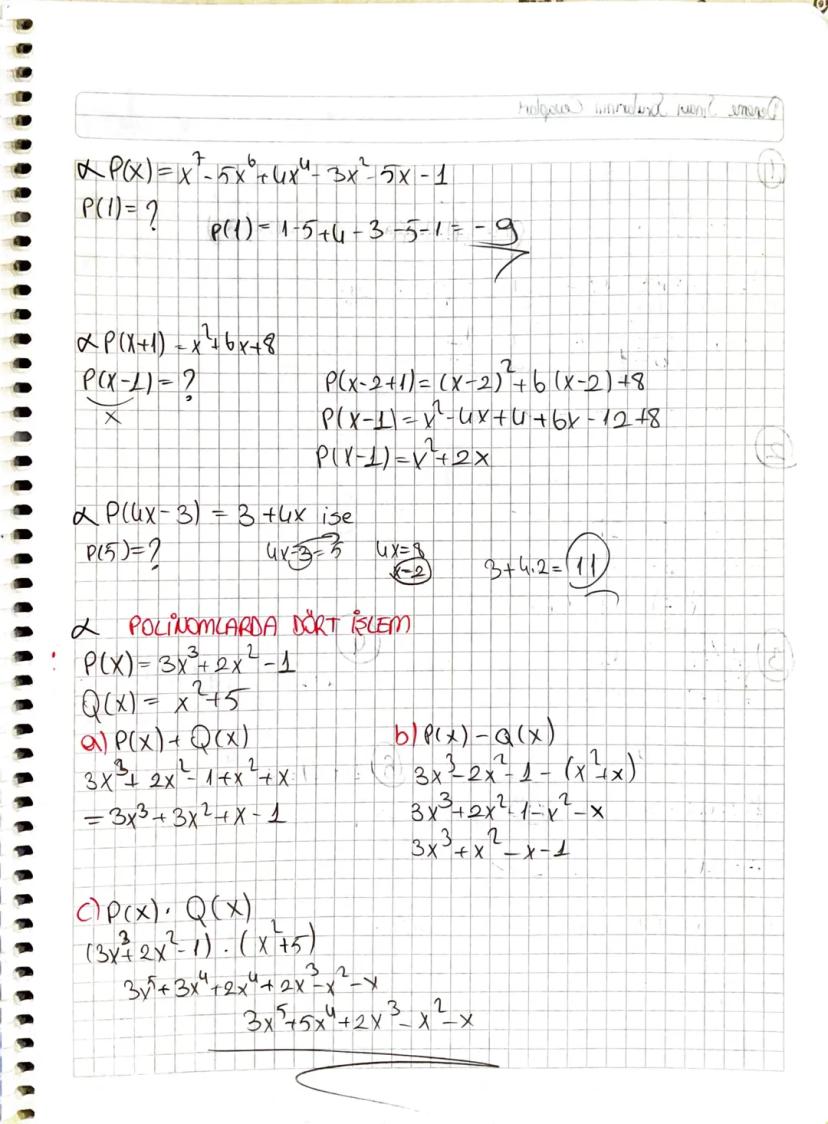 α P(x) = x⁷ - 5x⁶ + 4x⁴ - 3x² - 5x - 1
P(1) = ?
P(1) = 1-5+4-3-5-1 = -9
α P(x+1) = x²+6x+8
P(x-1) = ?
x
P(x-2+1) = (x-2)²+6(x-2)+8
P(x-1) = x²-4x+4+6x-12+8
P(x-1) = x²+2x
α P(4x-3) = 3+4x ise
P(5) = ?
4x-3=5
4x=8
x=2
3+4.2= 11
α POLİNOMLARDA DÖRT İŞLEM
P(x) = 3x³+2x²-1
Q(x) = x²+5
a) P(x)+Q(x)
3x³+2x²-1+x²+x
=3x³+3x²+x-1
b) P(x)-Q(x)
3x³-2x²-1-(x²+x)
3x³+2x²-1-x²-x
3x³+x²-x-1
c) P(x). Q(x)
(3x³+2x²-1).(x²+5)
3x⁵+3x⁴+2x⁴+2x³-x²-x
3x⁵+5x⁴+2x³-x²-x